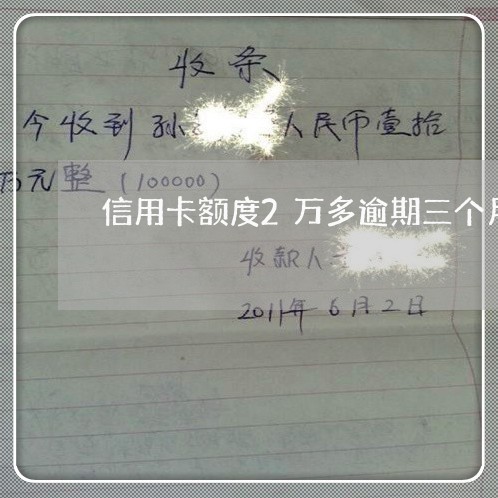 收条
今收到孙 人民币壹拾
万元整（100000）
信用卡额度2 万多逾期三个月
收款人
2011年6月2日